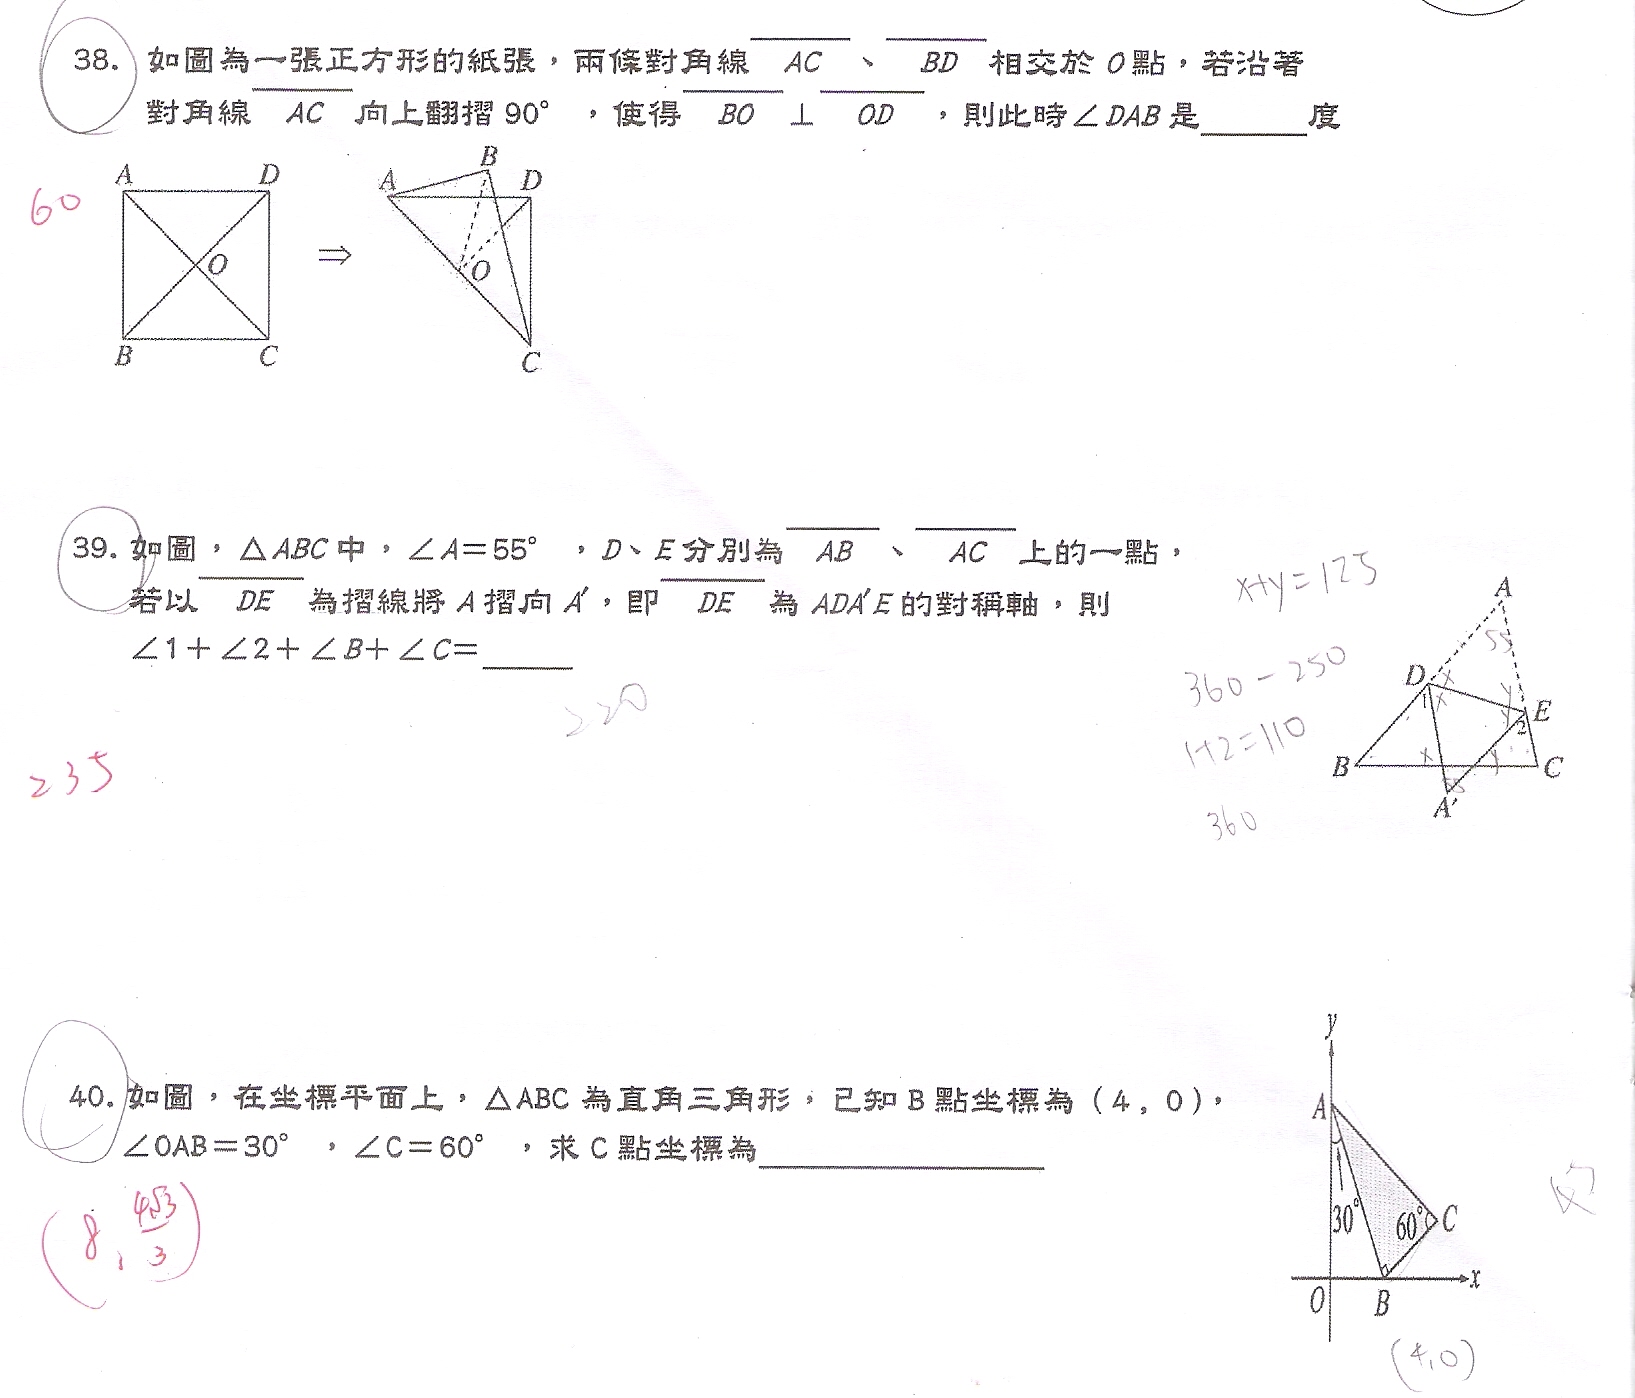 38. 如圖為一張正方形的紙張，兩條對角線 AC 、 BD 相交於 O 點，若沿著
對角線 AC 向上翻摺 90° ，使得 BO ⊥ OD ，則此時∠DAB 是______度
60
A D
O
B C
⇒
B
A D
O
C
39. 如圖，△ABC 中，∠A＝55° ，D、E 分別為 AB 、 AC 上的一點，
若以 DE 為摺線將 A 摺向 A′，即 DE 為 ADA′E 的對稱軸，則
∠1＋∠2＋∠B＋∠C＝_____
220
235
x+y=125
360-250
1+2=110
360
A
55
D x y
1 x y E
2
B x y C
55
A′
40. 如圖，在坐標平面上，△ABC 為直角三角形，已知 B 點坐標為（4，0），
∠OAB＝30° ，∠C＝60° ，求 C 點坐標為________________
(8, 4√3/3)
y
A
30° 60° C
O B x
(4,0)